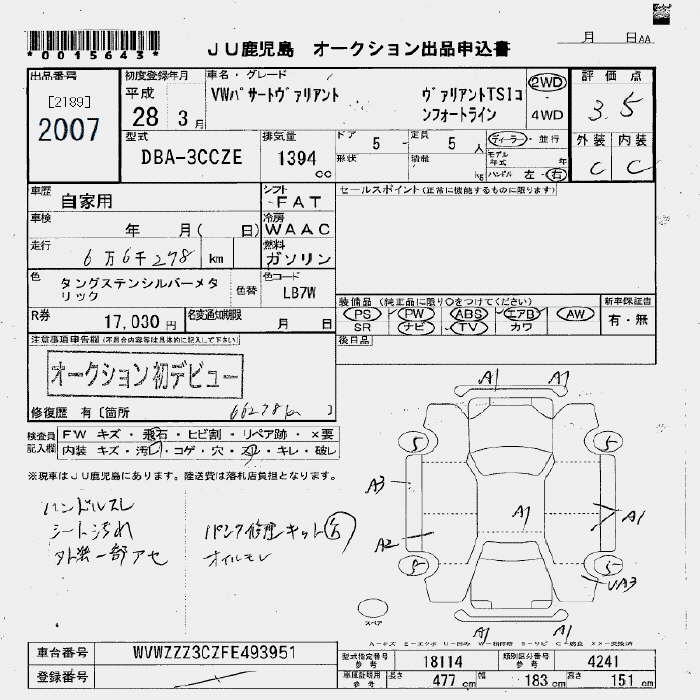 *0015643*
JU鹿児島 オークション出品申込書
月 日AA
出品番号
[2189]
2007
初度登録年月
平成
28 3月
車名・グレード
VWパサートヴァリアント
ヴァリアントTSIコ
ンフォートライン
2WD
-
4WD
評価点
3.5
外装 内装
C C
型式
DBA-3CCZE
排気量
1394
cc
ドア 5 - 定員 5 人
形状 積載 kg
ディーラー・並行
モデル年式 年
ハンドル 左・右
車歴
自家用
シフト
-FAT
セールスポイント(正常に機能するものに限ります)
車検
年 月( 日)
冷房
WAAC
走行
6万6千278 km
燃料
ガソリン
色
タングステンシルバーメタ
リック
色替
色コード
LB7W
装備品 (純正品に限り○をつけてください)
PS PW ABS エアB AW
SR ナビ TV カワ
新車保証書
有・無
R券
17,030円
名変通知期限
月 日
後日品
注意事項申告欄(不具合内容等は具体的に記入して下さい)
オークション初デビュー
修復歴 有〔箇所 66278km 〕
検査員
記入欄
FW キズ・飛石・ヒビ割・リペア跡・×要
内装 キズ・汚レ・コゲ・穴・スレ・キレ・破レ
※現車はJU鹿児島にあります。陸送費は落札店負担となります。
ハンドルスレ
シート汚れ
外装一部アセ
パンク修理キット
オイルモレ
A1 A1
5 5
A3
A1
A1
A2
5 5
A3
A1 A1
スペア
車台番号
WVWZZZ3CZFE493951
登録番号
型式指定番号
参考
18114
類別区分番号
参考
4241
車庫証明用
参考
長さ 477 cm 幅 183 cm 高さ 151 cm